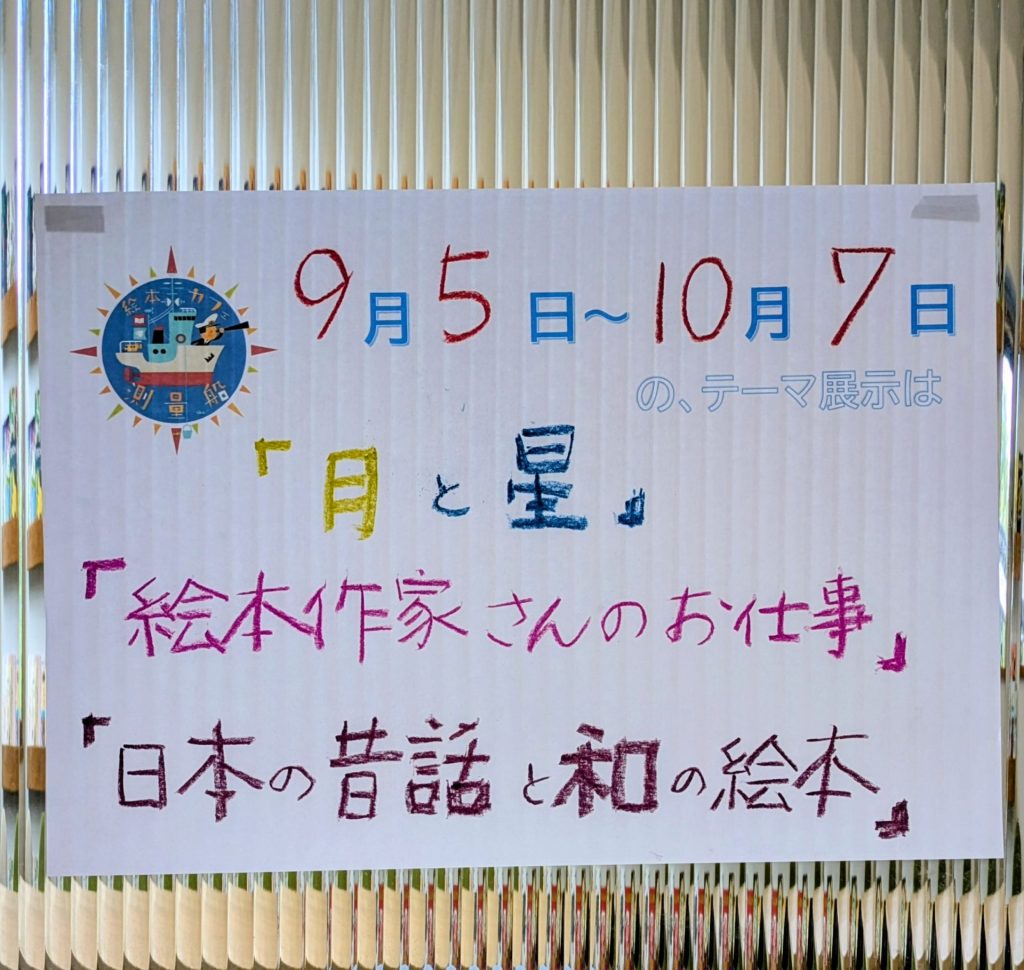 絵本カフェ
測量船
9月5日～10月7日
の、テーマ展示は
「月と星」
「絵本作家さんのお仕事」
「日本の昔話と和の絵本」